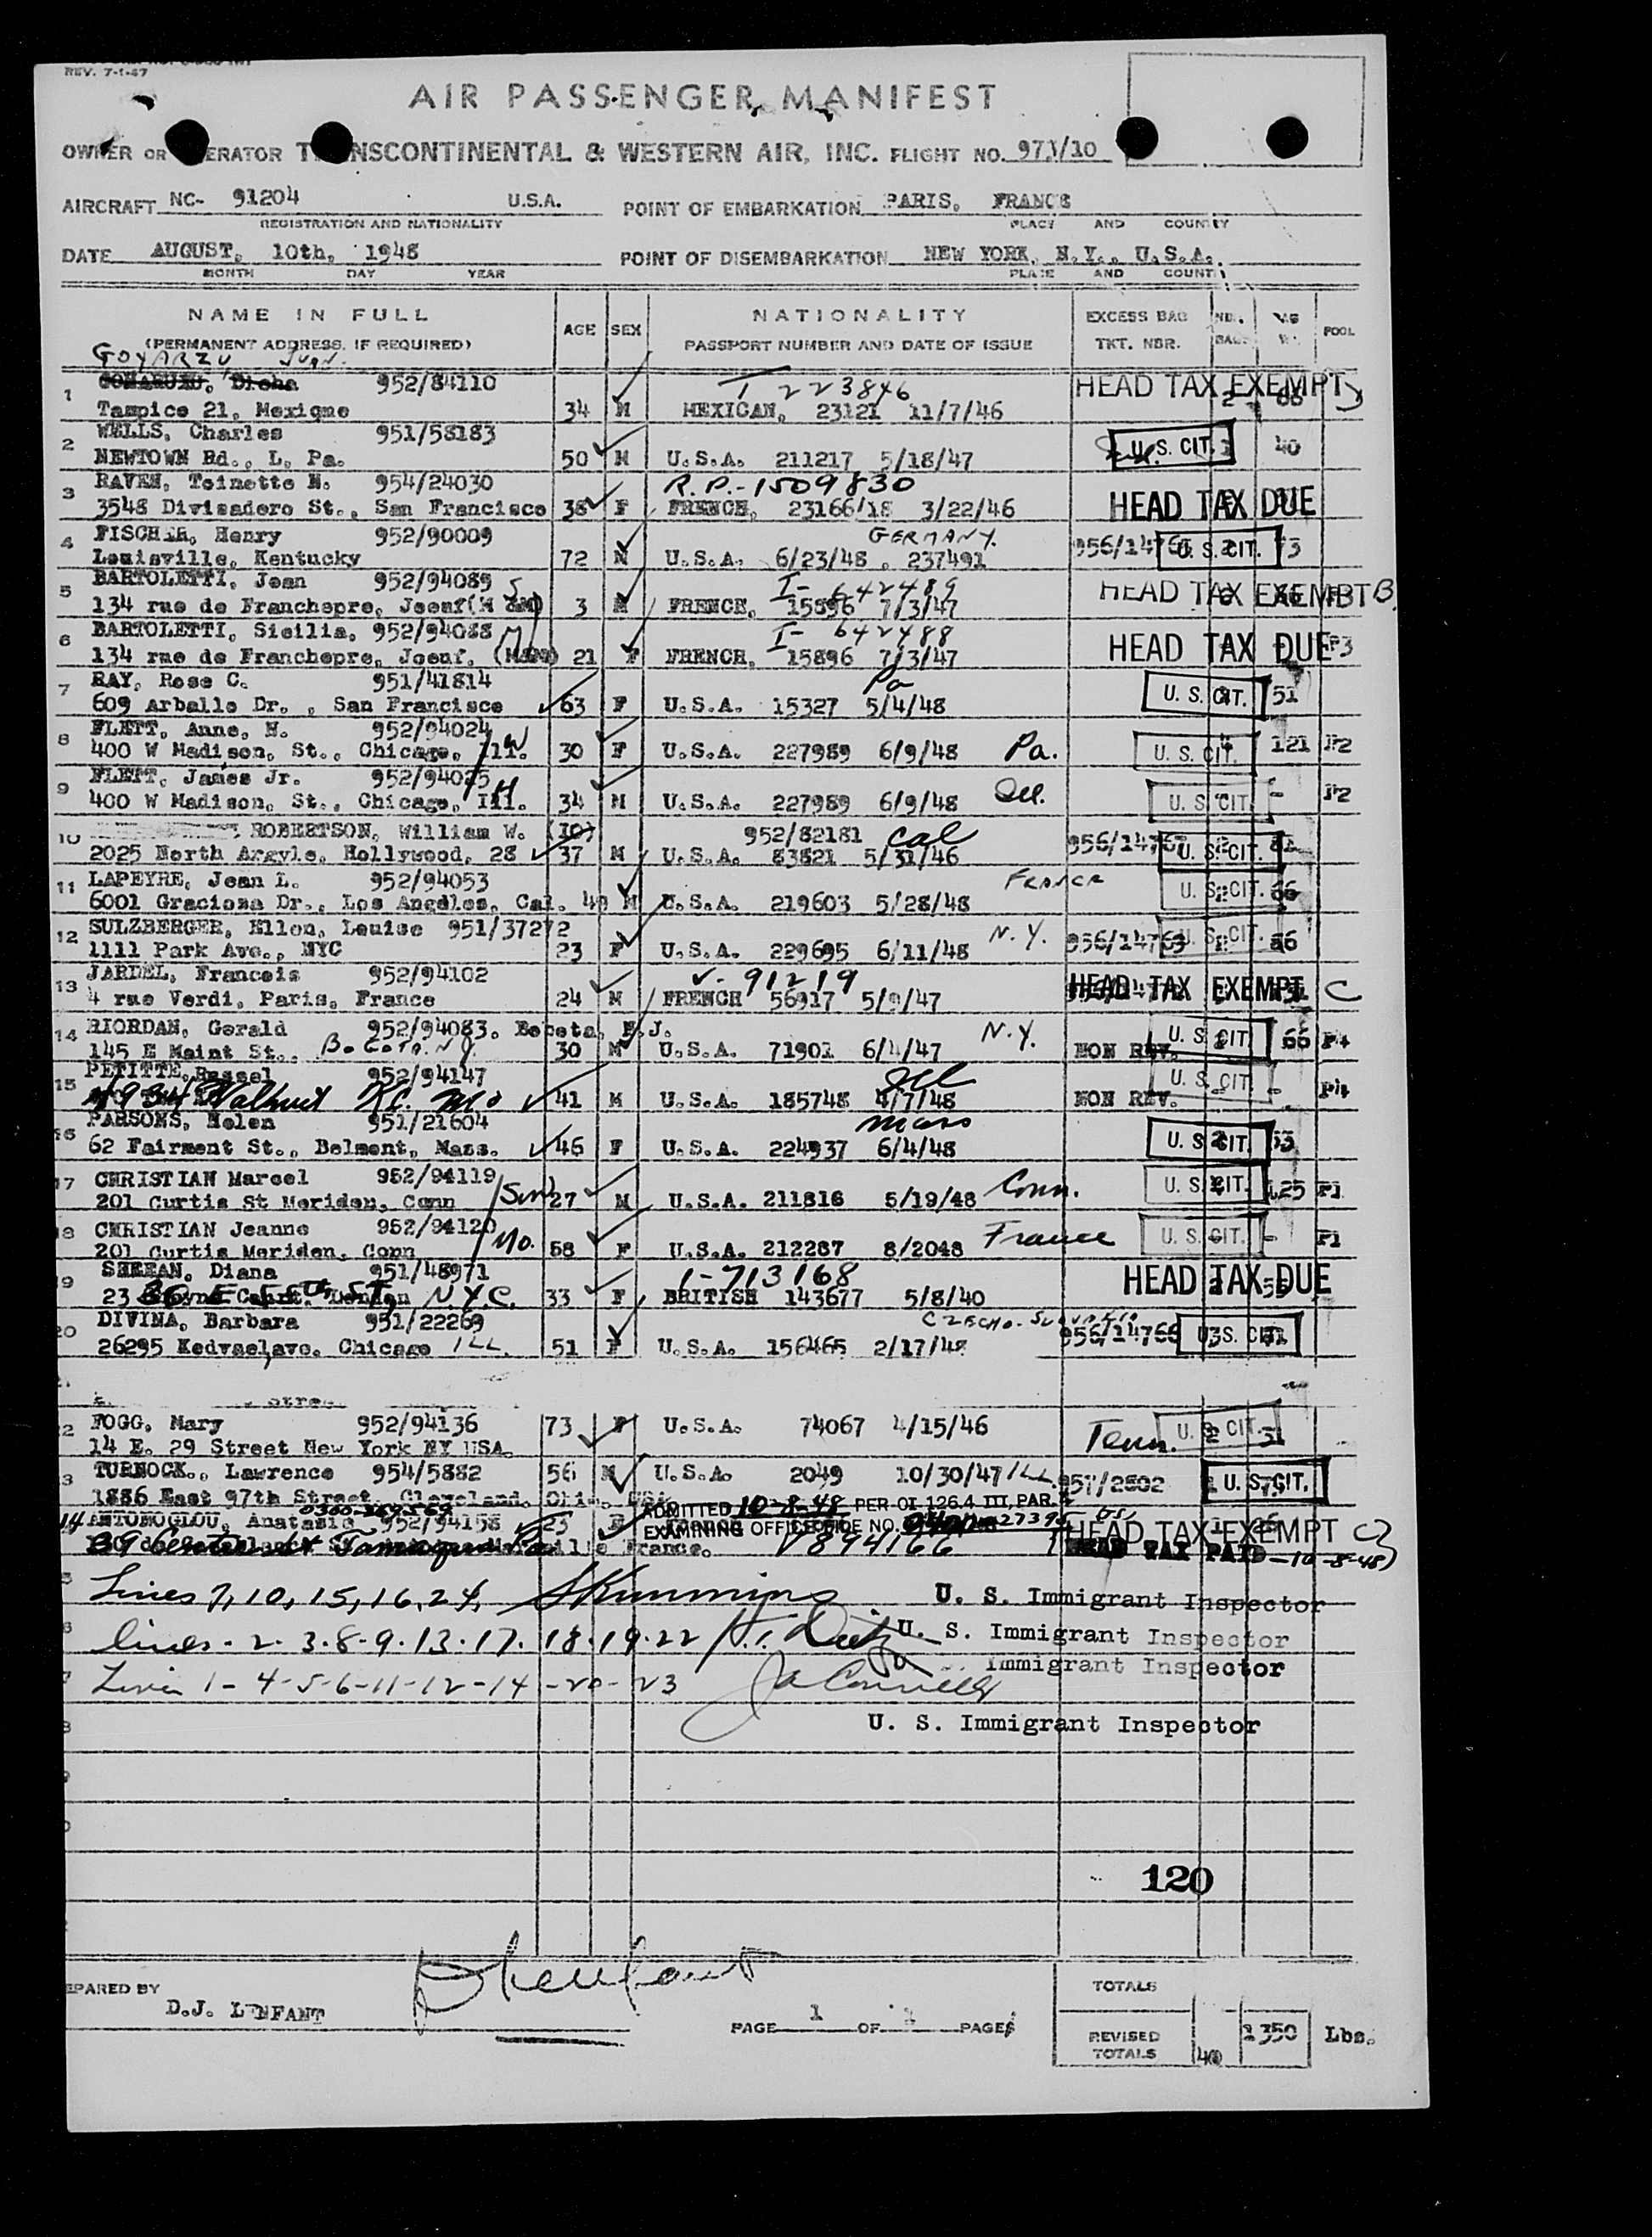 REV. 7-1-47
AIR PASSENGER MANIFEST
OWNER OR ERATOR T NSCONTINENTAL & WESTERN AIR, INC. FLIGHT NO. 971/10
AIRCRAFT NC- 91204 U.S.A. POINT OF EMBARKATION PARIS, FRANCE
REGISTRATION AND NATIONALITY PLACE AND COUNTRY
DATE AUGUST, 10th, 1948 POINT OF DISEMBARKATION NEW YORK, N.Y., U.S.A.
MONTH DAY YEAR PLACE AND COUNTRY
NAME IN FULL AGE SEX NATIONALITY EXCESS BAG
(PERMANENT ADDRESS, IF REQUIRED) PASSPORT NUMBER AND DATE OF ISSUE TKT. NBR. POOL
GOYARZU Juan
1 952/84110 T 223846 HEAD TAX EXEMPT
Tampico 21, Mexique 34 M MEXICAN, 23121 11/7/46
2 WELLS, Charles 951/58183 U. S. CIT. 40
NEWTOWN Rd., L, Pa. 50 M U.S.A. 211217 5/18/47
3 RAVEN, Toinette N. 954/24030 R.P.-1509830 HEAD TAX DUE
3548 Divisadero St., San Francisco 38 F FRENCH, 23166/18 3/22/46
4 FISCHER, Henry 952/90009 GERMANY. U. S. CIT. 73
Louisville, Kentucky 72 M U.S.A. 6/23/48 . 237491
5 BARTOLETTI, Jean 952/94089 I- 642489 HEAD TAX EXEMPT B.
134 rue de Franchepre, Joeuf 3 M FRENCH, 15896 7/3/47
6 BARTOLETTI, Sicilia, 952/94088 I- 642488 HEAD TAX DUE P3
134 rue de Franchepre, Joeuf, 21 F FRENCH, 15896 7/3/47
7 RAY, Rose C. 951/41814 Pa U. S. CIT. 51
609 Arballo Dr. , San Francisco 63 F U.S.A. 15327 5/4/48
8 FLETT, Anne, N. 952/94024 W
400 W Madison, St., Chicago, Ill. 30 F U.S.A. 227989 6/9/48 Pa. U. S. CIT. 121 P2
9 FLETT, James Jr. 952/94025 H
400 W Madison, St., Chicago, Ill. 34 M U.S.A. 227989 6/9/48 Ill. U. S. CIT. - P2
10 ROBERTSON, William W. (10) 952/82181 Cal 956/14767 U. S. CIT.
2025 North Argyle, Hollywood, 28 37 M U.S.A. 83821 5/31/46
11 LAPEYRE, Jean L. 952/94053 FRANCE U. S. CIT. 66
6001 Graciosa Dr., Los Angeles, Cal. 40 M U.S.A. 219603 5/28/48
12 SULZBERGER, Ellen, Louise 951/37272 N.Y. 956/14763 U. S. CIT. 86
1111 Park Ave., NYC 23 F U.S.A. 229695 6/11/48
13 JARDEL, Francois 952/94102 V-91219 HEAD TAX EXEMPT C
4 rue Verdi, Paris, France 24 M FRENCH 56917 5/9/47
14 RIORDAN, Gerald 952/94083. Bogota, N.J. N.Y. U. S. CIT. 66 P4
145 E Maint St., Bogota. N.J. 30 M U.S.A. 71901 6/4/47 NON REV.
15 PETITTE, Russel 952/94147 Ill U. S. CIT. - P4
4934 Walnut K.C. Mo 41 M U.S.A. 185748 4/7/48 NON REV.
16 PARSONS, Helen 951/21604 Mass U. S. CIT.
62 Fairmont St., Belmont, Mass. 46 F U.S.A. 224937 6/4/48
17 CHRISTIAN Marcel 952/94119 (Son) Conn. U. S. CIT. 125 P1
201 Curtis St Meriden, Conn 27 M U.S.A. 211816 5/19/48
18 CHRISTIAN Jeanne 952/94120 Mo. France U. S. CIT. - P1
201 Curtis Meriden, Conn 58 F U.S.A. 212287 8/2048
19 SHEEAN, Diana 951/48971 1-713168 HEAD TAX DUE
23 36 E 58th ST, N.Y.C. 33 F BRITISH 143677 5/8/40
20 DIVINA, Barbara 951/22269 956/14766 U. S. CIT.
26295 Kedvaelave. Chicago ILL. 51 F U.S.A. 156465 2/17/48
22 FOGG, Mary 952/94136 73 F U.S.A. 74067 4/15/46 Tenn. U. S. CIT.
14 E. 29 Street New York NY USA.
23 TURNOCK., Lawrence 954/5882 56 M U.S.A. 2049 10/30/47 ILL 957/2802 U. S. CIT.
1886 East 97th Street, Cleveland, Ohio, USA
ADMITTED 10-8-48 PER OI 126.4 III, PAR.
ANTONOGLOU, Anatasia 952/94158 23 F EXAMINING OFFICER FILE NO. HEAD TAX EXEMPT
France. V894166 HEAD TAX PAID-10-8-48
Lines 7, 10, 15, 16, 24, U. S. Immigrant Inspector
lines - 2 - 3 - 8 - 9 - 13 - 17 - 18 - 19 - 22 U. S. Immigrant Inspector
Immigrant Inspector
Lines 1 - 4 - 5 - 6 - 11 - 12 - 14 - 20 - 23
U. S. Immigrant Inspector
120
EPARED BY D.J. LENFANT
PAGE 1 OF PAGES
TOTALS
REVISED TOTALS 40 1350 Lbs.